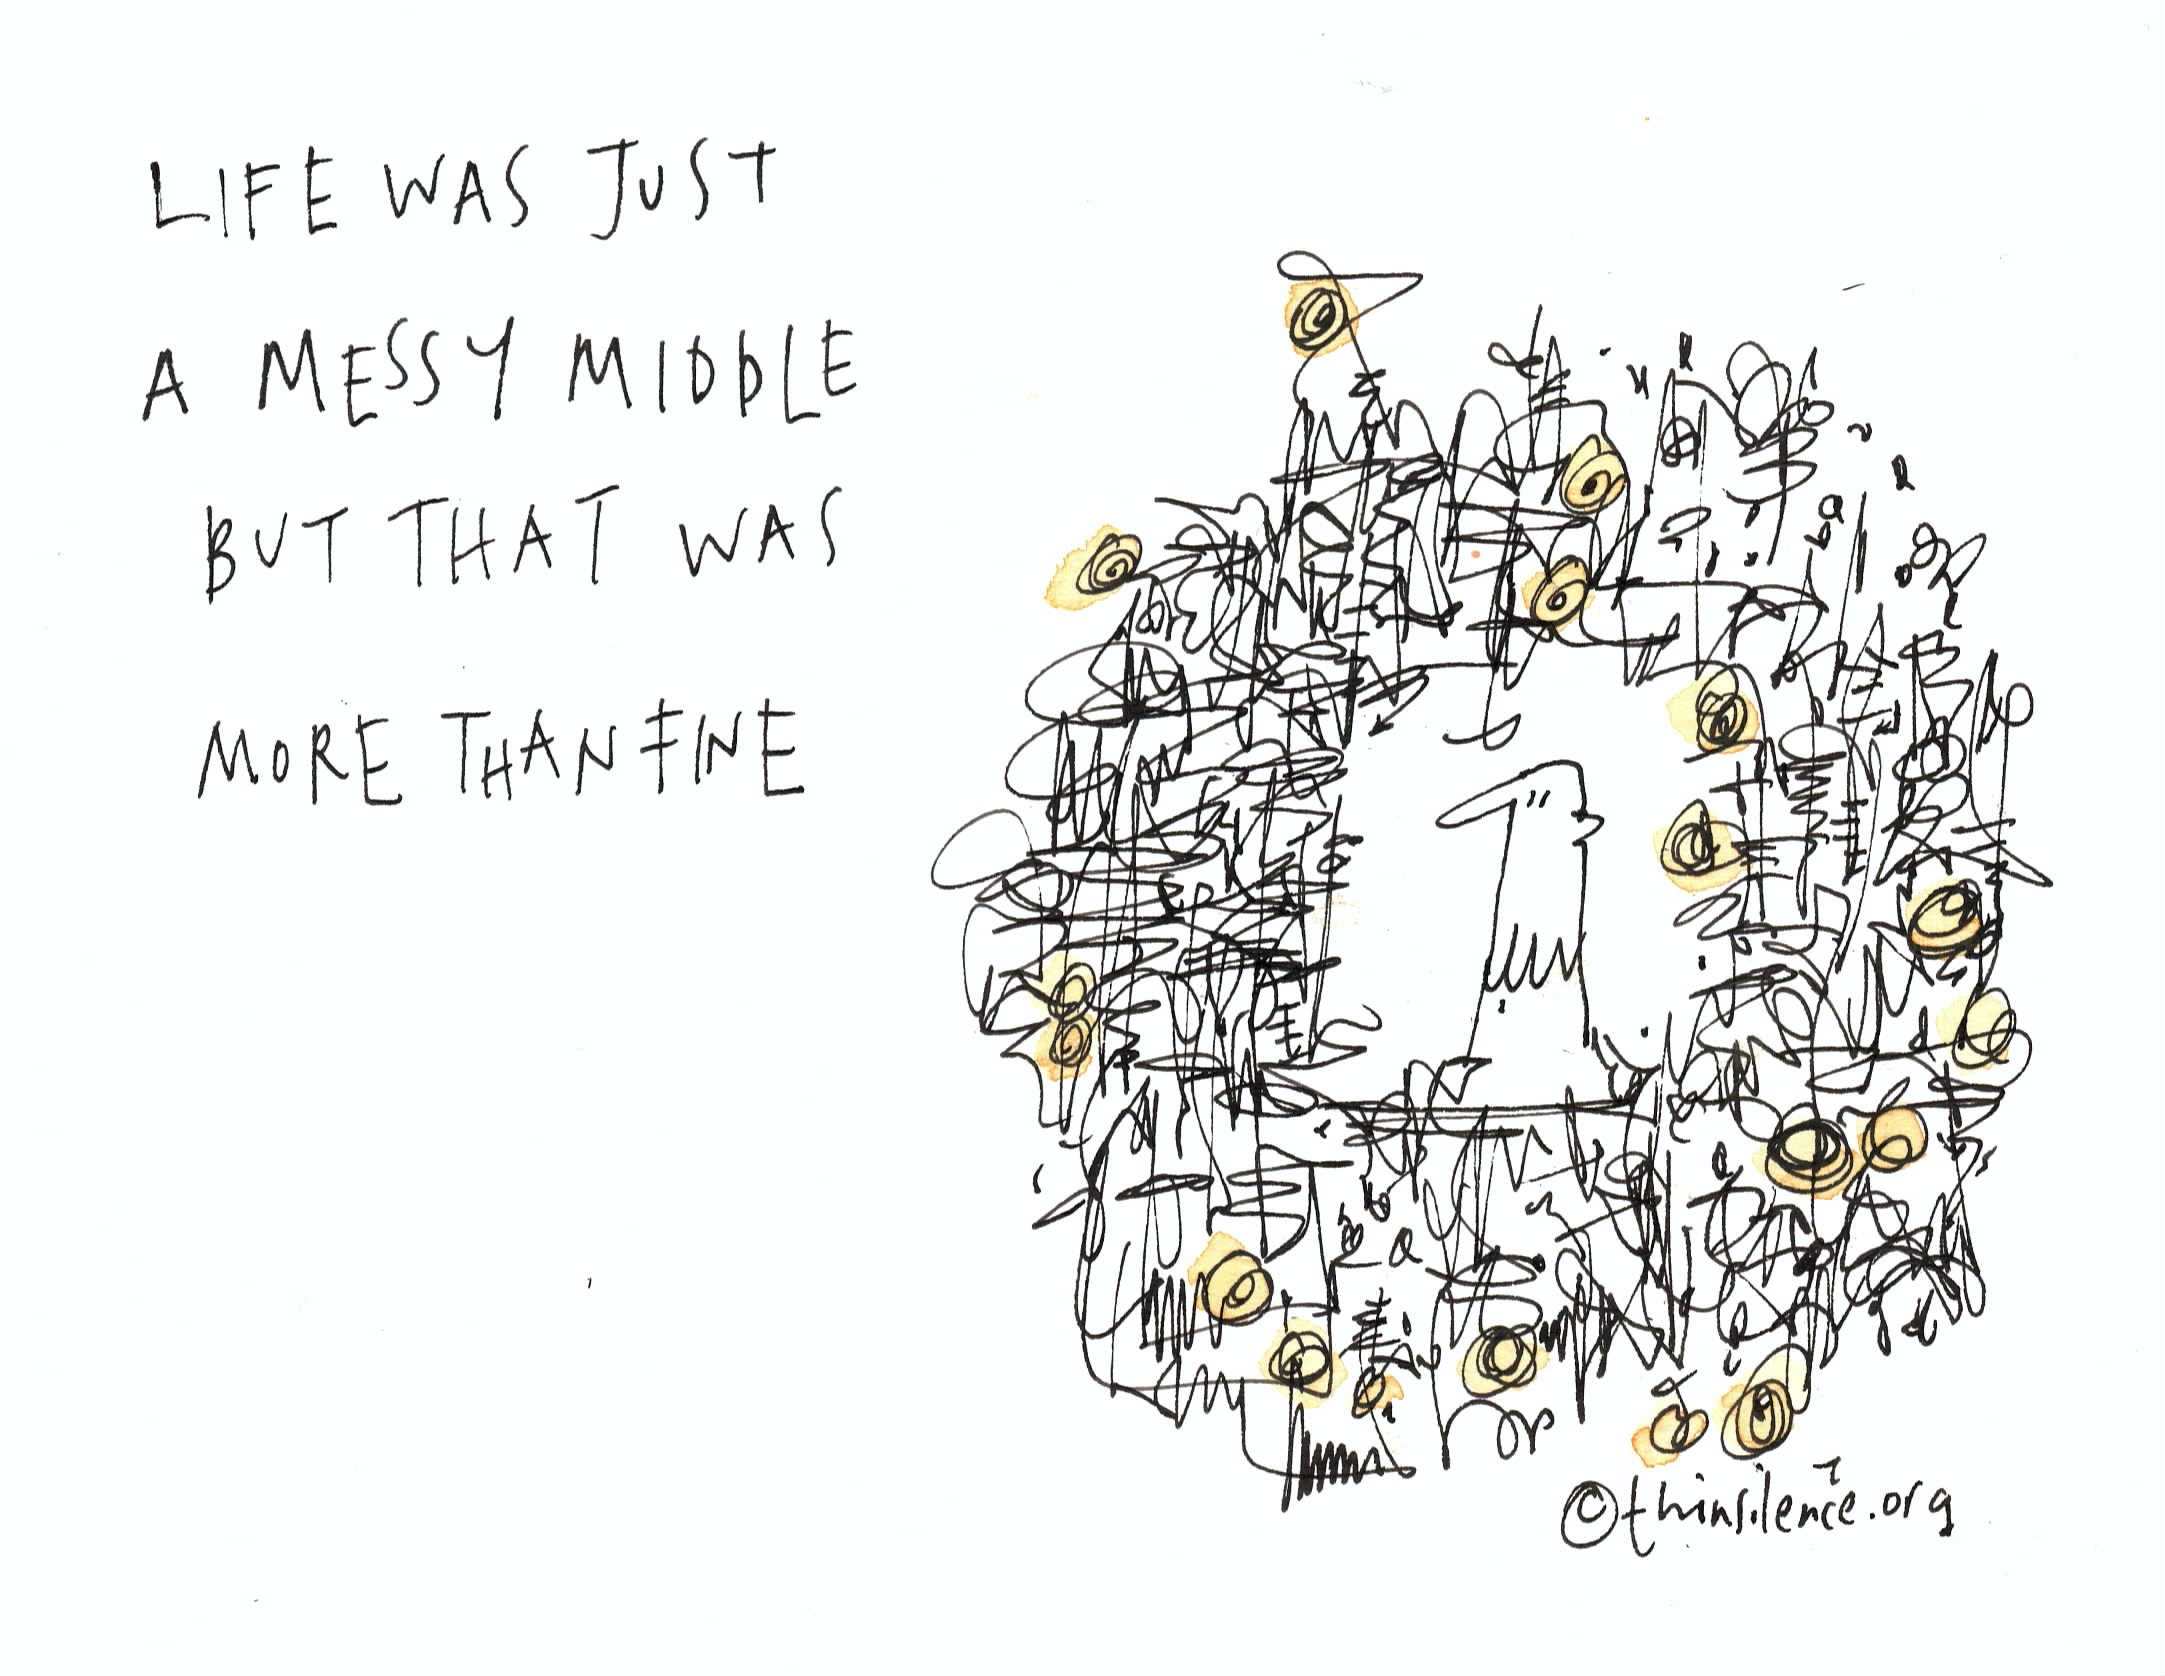 LIFE WAS JUST
A MESSY MIDDLE
BUT THAT WAS
MORE THAN FINE
©thinsilence.org